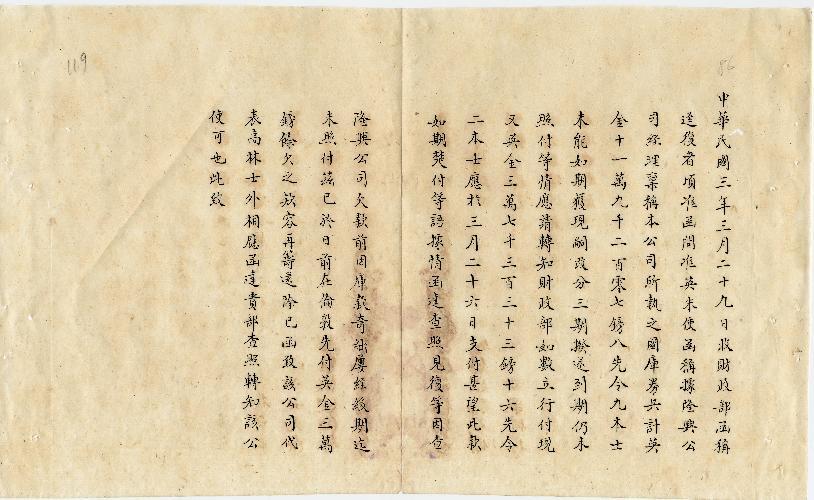 中華民國三年三月二十九日收財政部函稱
逕復者頃准函開准英朱使函稱據隆興公
司經理稟稱本公司所執之國庫券共計英
金十一萬九千二百零七鎊八先令九本士
未能如期獲現嗣改分三期撥還到期仍未
照付等情應請轉知財政部如數立行付現
又英金三萬七千三百三十三鎊十六先令
二本士應於三月二十六日支付甚望此款
如期照付等語據情函達查照見復等因查
隆興公司欠款前因庫款奇絀屢經緩期迄
未照付茲已於日前在倫敦先付英金三萬
鎊餘欠之款容再籌還除已函致該公司代
表高林士外相應函達貴部查照轉知該公
使可也此致
119
86